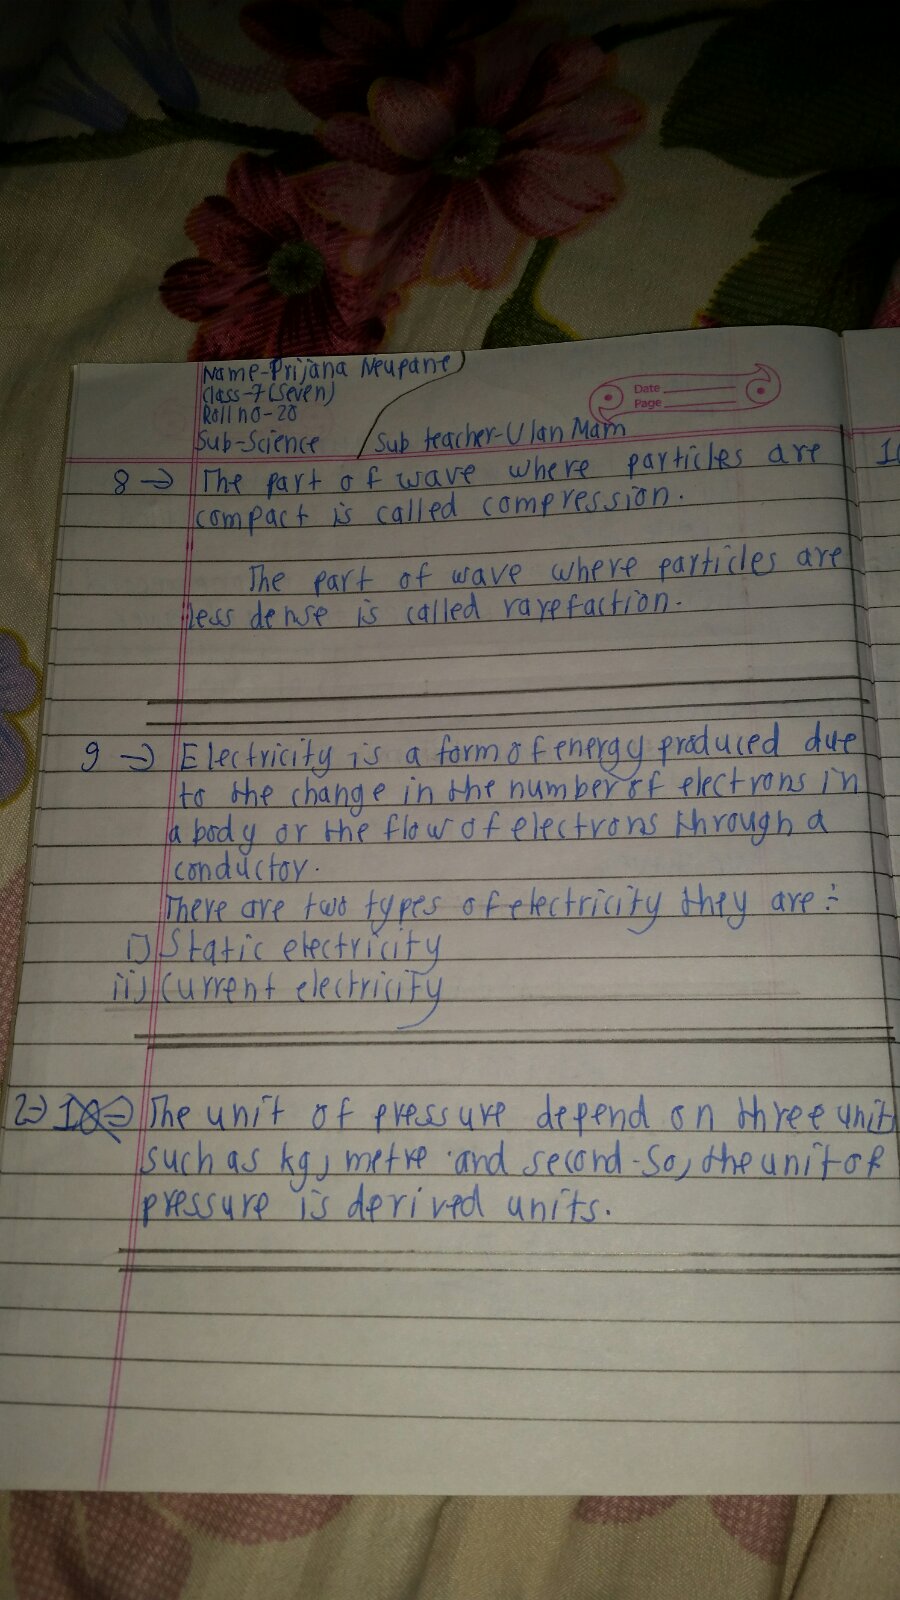 Name-Prijana Neupane
Class-7(Seven)
Roll no-28
Sub-Science
Sub teacher-Ulan Mam
Date
Page
8→ The part of wave where particles are
compact is called compression.
The part of wave where particles are
less dense is called rarefaction.
9→ Electricity is a form of energy produced due
to the change in the number of electrons in
a body or the flow of electrons through a
conductor.
There are two types of electricity they are :-
i) Static electricity
ii) Current electricity
2→ The unit of pressure depend on three unit
such as kg, metre and second. So, the unit of
pressure is derived units.